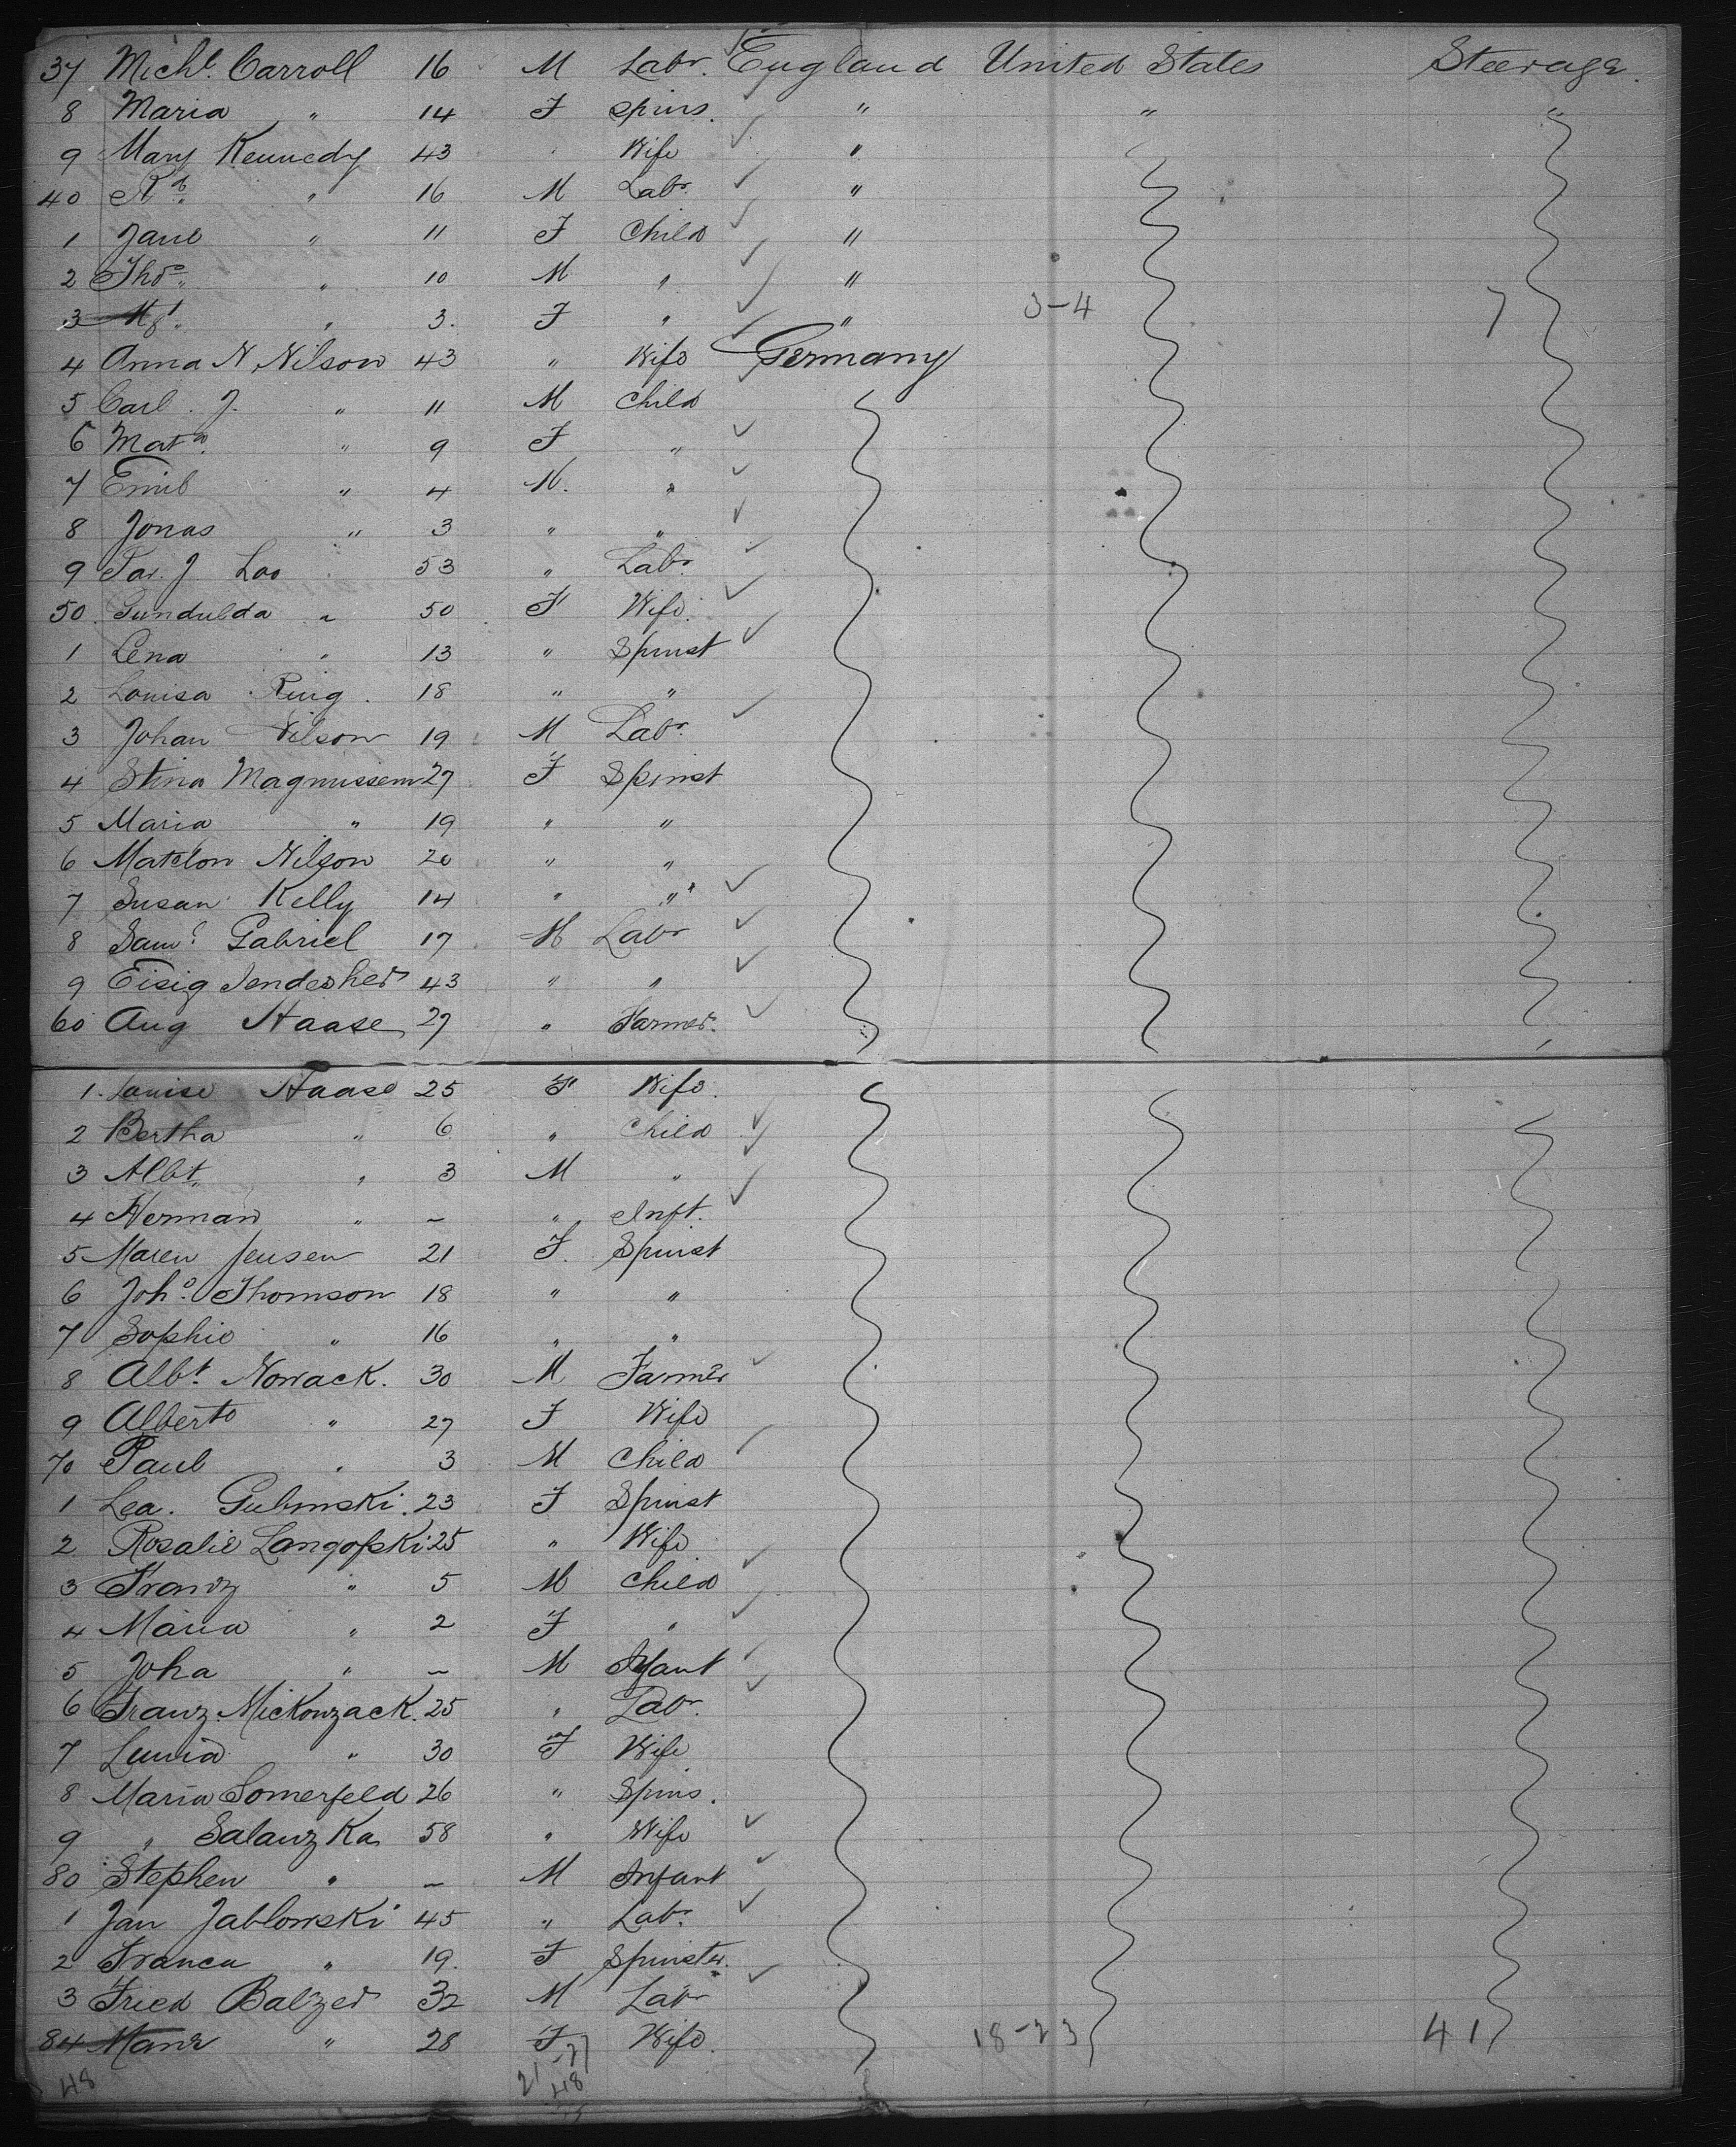 37 Michl. Carroll 16 M Labr. England United States Steerage.
8 Maria " 14 F Spins. " " "
9 Mary Kennedy 43 Wife "
40 Rt. " 16 M Labr. "
1 Jane " 11 F Child "
2 Thos. " 10 M " "
3 Mgt. " 3. F " " 3-4 7
4 Anna N Nilson 43 " Wife Germany
5 Carl. J. " 11 M Child
6 Mata. " 9 F "
7 Emil " 4 M. "
8 Jonas " 3 " "
9 J Loo 53 " Labr.
50. Gundulda " 50 F Wife.
1 Lena " 13 " Spinst
2 Louisa Ring. 18 " "
3 Johan Nilson 19 M Labr.
4 Stina Magnussem 27 F Spinst
5 Maria " 19 " "
6 Matelon Nilson 20 " "
7 Susan Kelly 14 " "
8 Saml. Gabriel 17 M Labr
9 Eisig 43 " "
60 Aug Haase 27 " Farmer.
1. Louise Haase 25 F Wife.
2 Bertha " 6 " Child
3 Albt. " 3 M "
4 Herman " – " Inft.
5 Maren Jensen 21 F. Spinst
6 Joho. Thomson 18 " "
7 Sophie " 16 " "
8 Albt. Nowack. 30 M Farmer
9 Alberto " 27 F Wife
70 Paul " 3 M Child
1 Lea. Gubinski. 23 F Spinst
2 Rosalie Langofski 25 " Wife
3 Franz " 5 M Child
4 Maria " 2 F "
5 Joha " – M Infant
6 Franz Mickonzack. 25 " Labr.
7 " 30 F Wife
8 Maria Somerfeld 26 " Spins.
9 " Salanzka 58 " Wife
80 Stephen " – M Infant
1 Jan Jablowski 45 " Labr.
2 Franca " 19. F Spinster.
3 Fried Balzer 32 M Labr
84 " 28 F Wife. 18-23 41
48 21-27
48